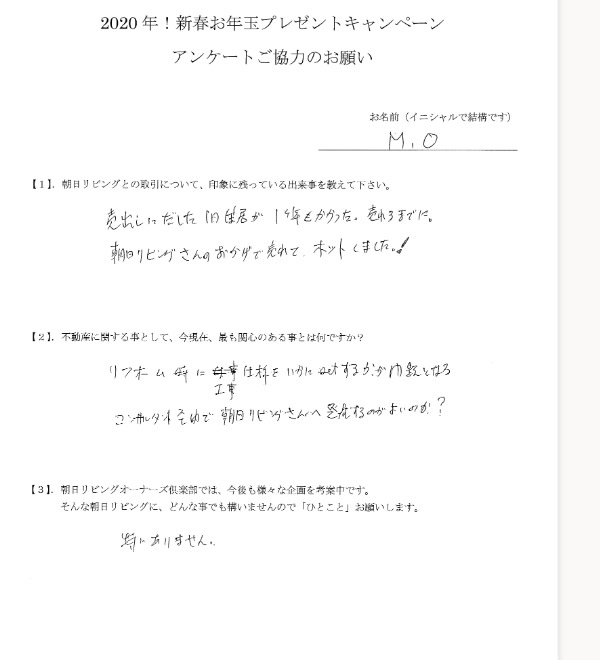 2020年！新春お年玉プレゼントキャンペーン
アンケートご協力のお願い
お名前（イニシャルで結構です）
M.O
【1】．朝日リビングとの取引について、印象に残っている出来事を教えて下さい。
売出しにだした旧住居が 1年もかかった。売れるまでに。
朝日リビングさんのおかげで売れて、ホットしました。！
【2】．不動産に関する事として、今現在、最も関心のある事とは何ですか？
リフォーム 時に 仕事
工事
コンサルタント で 朝日リビングさんへ するのがよいのか？
【3】．朝日リビングオーナーズ倶楽部では、今後も様々な企画を考案中です。
そんな朝日リビングに、どんな事でも構いませんので「ひとこと」お願いします。
特にありません。